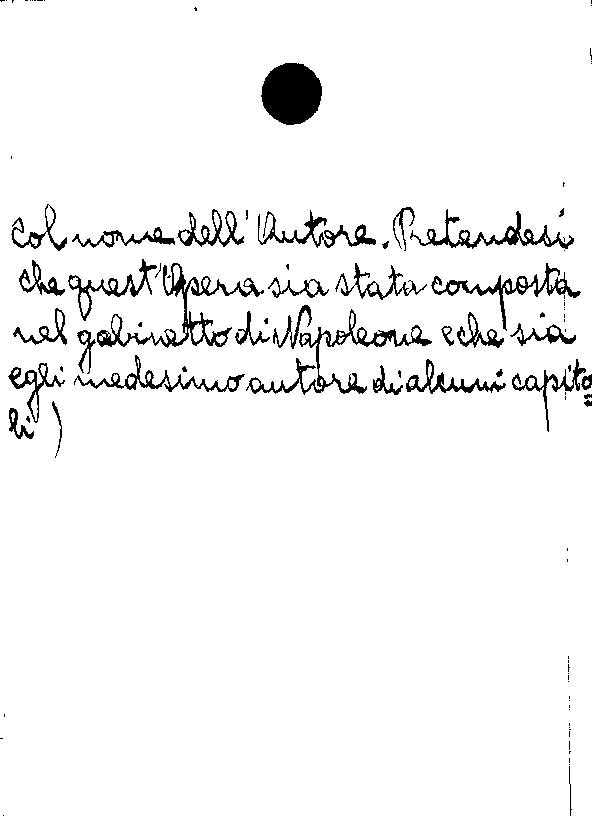 col nome dell'Autore. Pretendesi
che quest'Opera sia stata composta
nel gabinetto di Napoleone e che sia
egli medesimo autore di alcuni capito=
li )